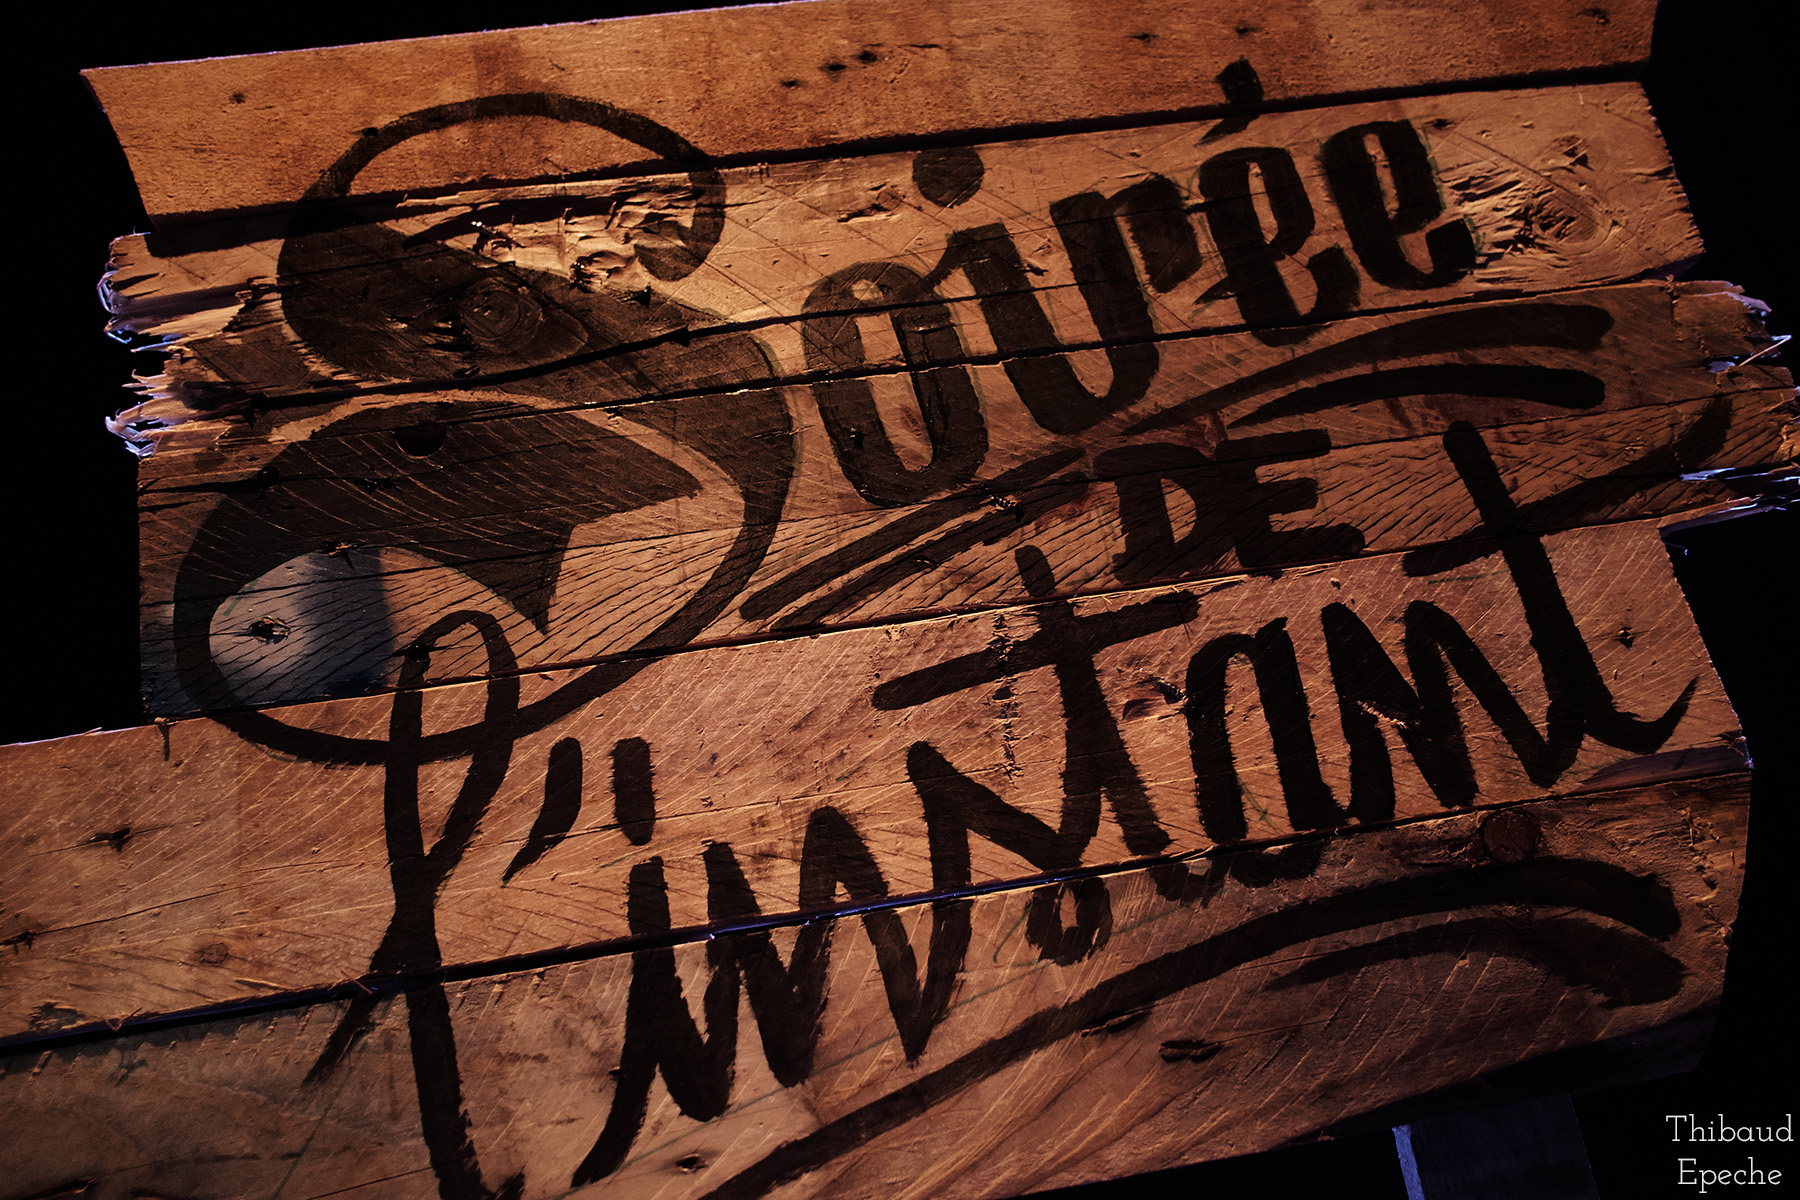 Soirée
DE
l'instant
Thibaud
Epeche